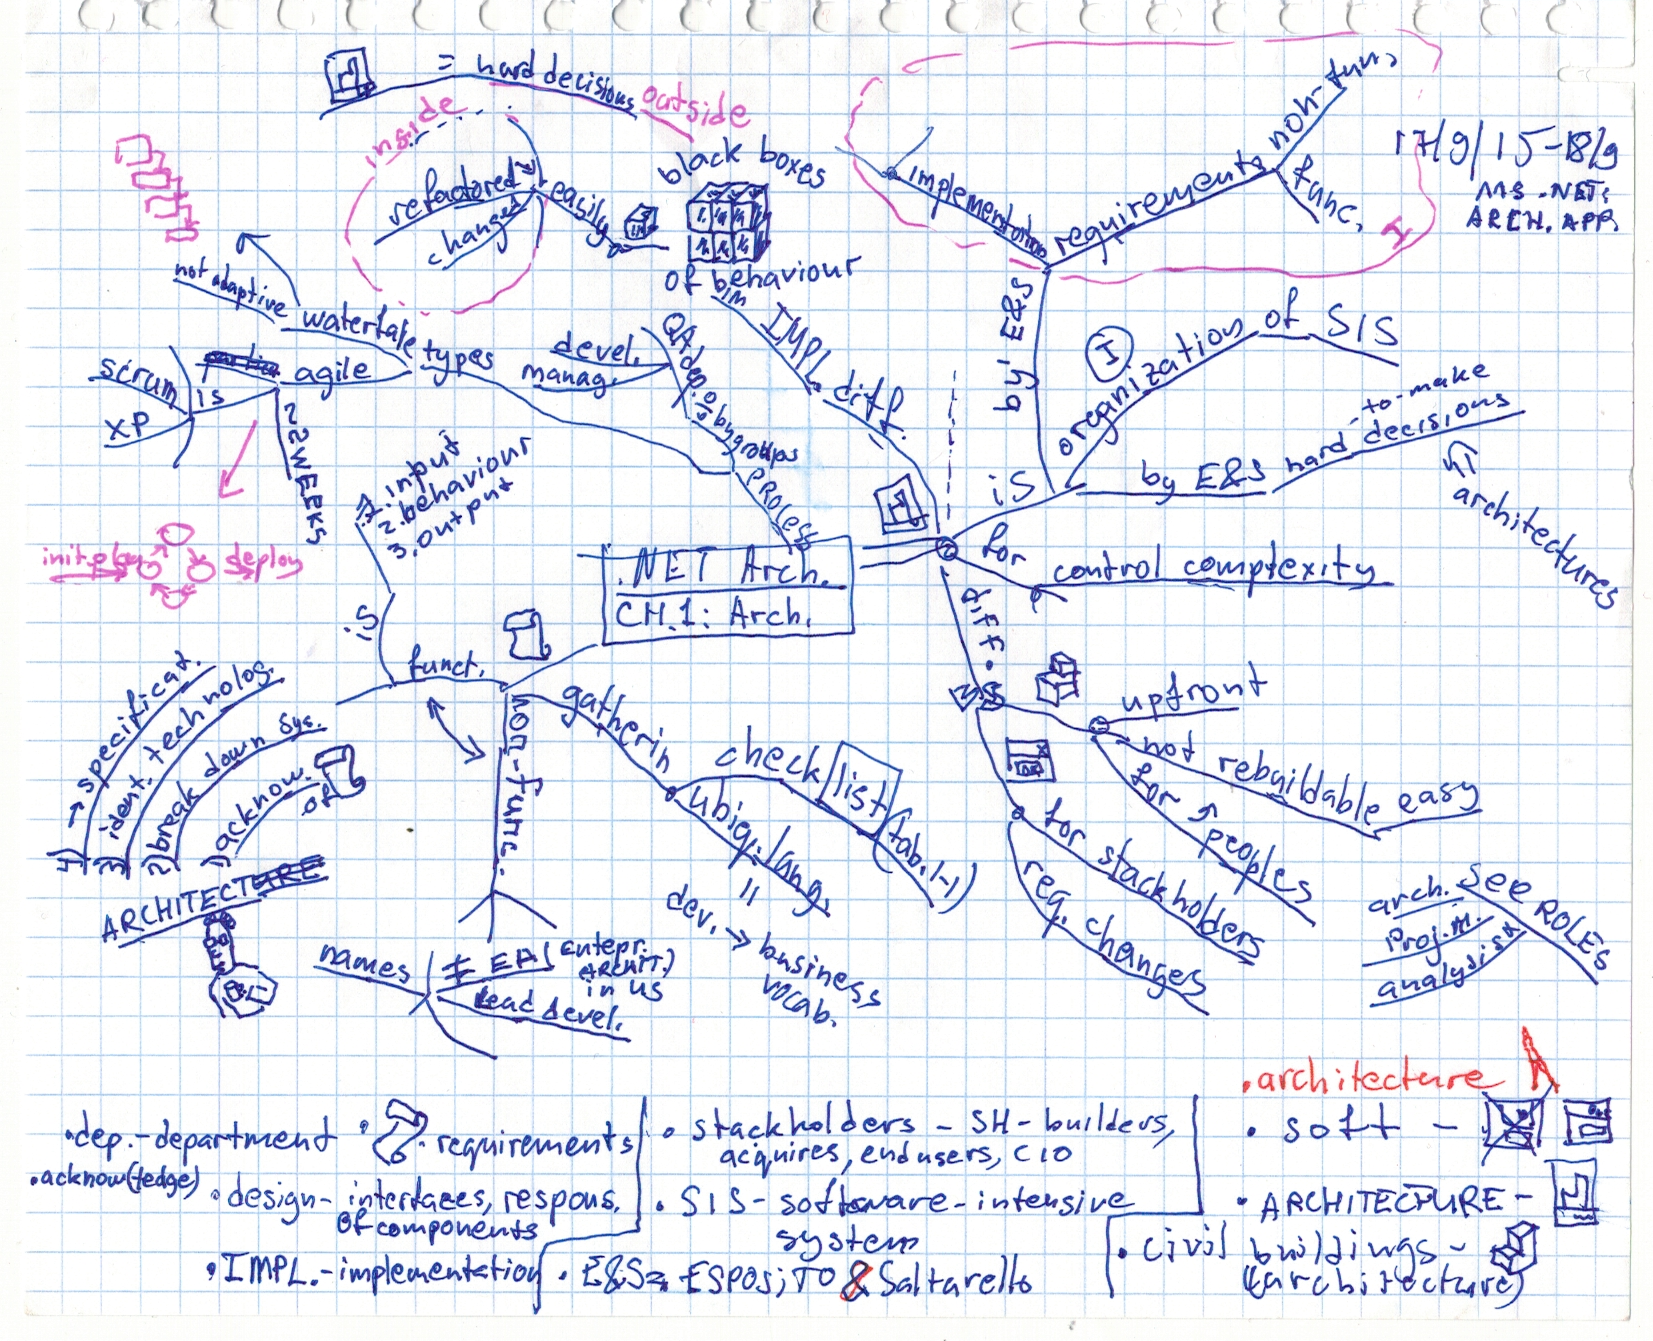 = hard decisions outside
inside
refactored
changed
easily
black boxes
of behaviour
implementation
requirements
non-fun,
func,
I
17/9/15-18/9
MS .NET:
ARCH. APP.
by E&S
I
organization of SIS
is
by E&S hard decisions
-to-make
architectures
for
control complexity
IMPL. diff.
not adaptive
waterfale
types
agile
is
scrum
XP
2 WEEKS
init.
deploy
devel.
manag.
by groups
PROCESS
1. input
2. behaviour
3. output
is
.NET Arch.
CH.1: Arch.
funct.
non-func.
gatherin
check list (tab. 1-1)
ubiq. lang.
=
dev. → business
vocab.
4) → specificat.
3) ident. technolog.
2) break down sys.
1) acknow. of
ARCHITECTURE
names
≠ EA (Entepr.
ARCHIT.)
in US
Lead devel.
diff.
upfront
not rebuildable easy
for peoples
for stackholders
req. changes
see ROLES
arch.
Proj. M.
analysist
.architecture
•dep.-department
• requirements
•acknow(ledge)
•design- interfaces, respons.
of components
•IMPL.-implementation
• stackholders - SH-builders,
acquires, end users, CIO
• SIS-software-intensive
system
• E&S= ESPOSITO & Saltarello
• soft -
• ARCHITECTURE -
• civil buildings -
(architecture)